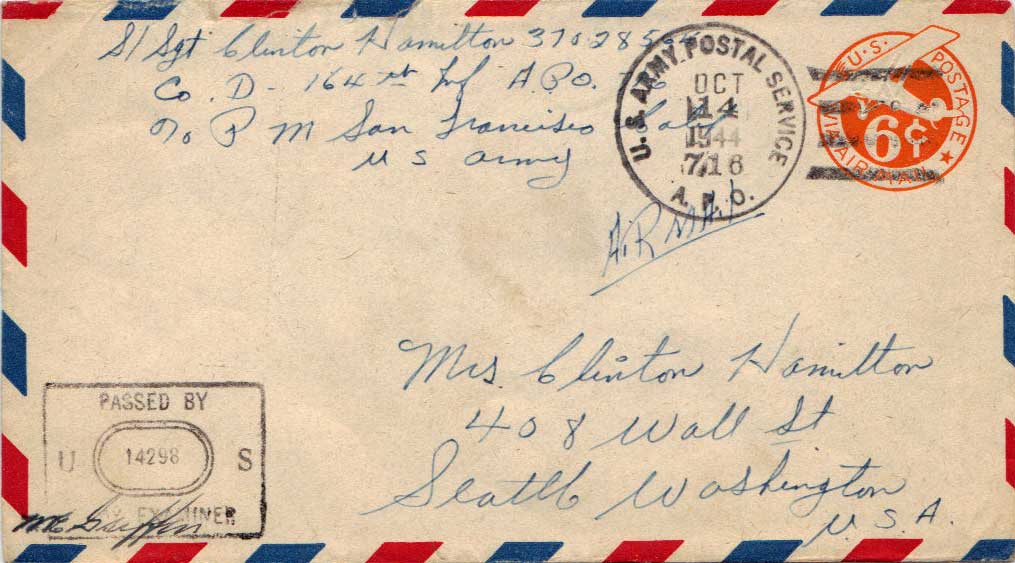 S/Sgt Clinton Hamilton
Co. D - 164th Inf A.P.O.
c/o P M San Francisco Calif
U S Army
U.S. ARMY. POSTAL SERVICE
OCT
14
1944
716
A. P. O.
U.S. POSTAGE
6¢
VIA AIR MAIL
AiR MAiL
Mrs. Clinton Hamilton
408 Wall St
Seattle Washington
U. S. A.
PASSED BY
U 14298 S
ARMY EXAMINER